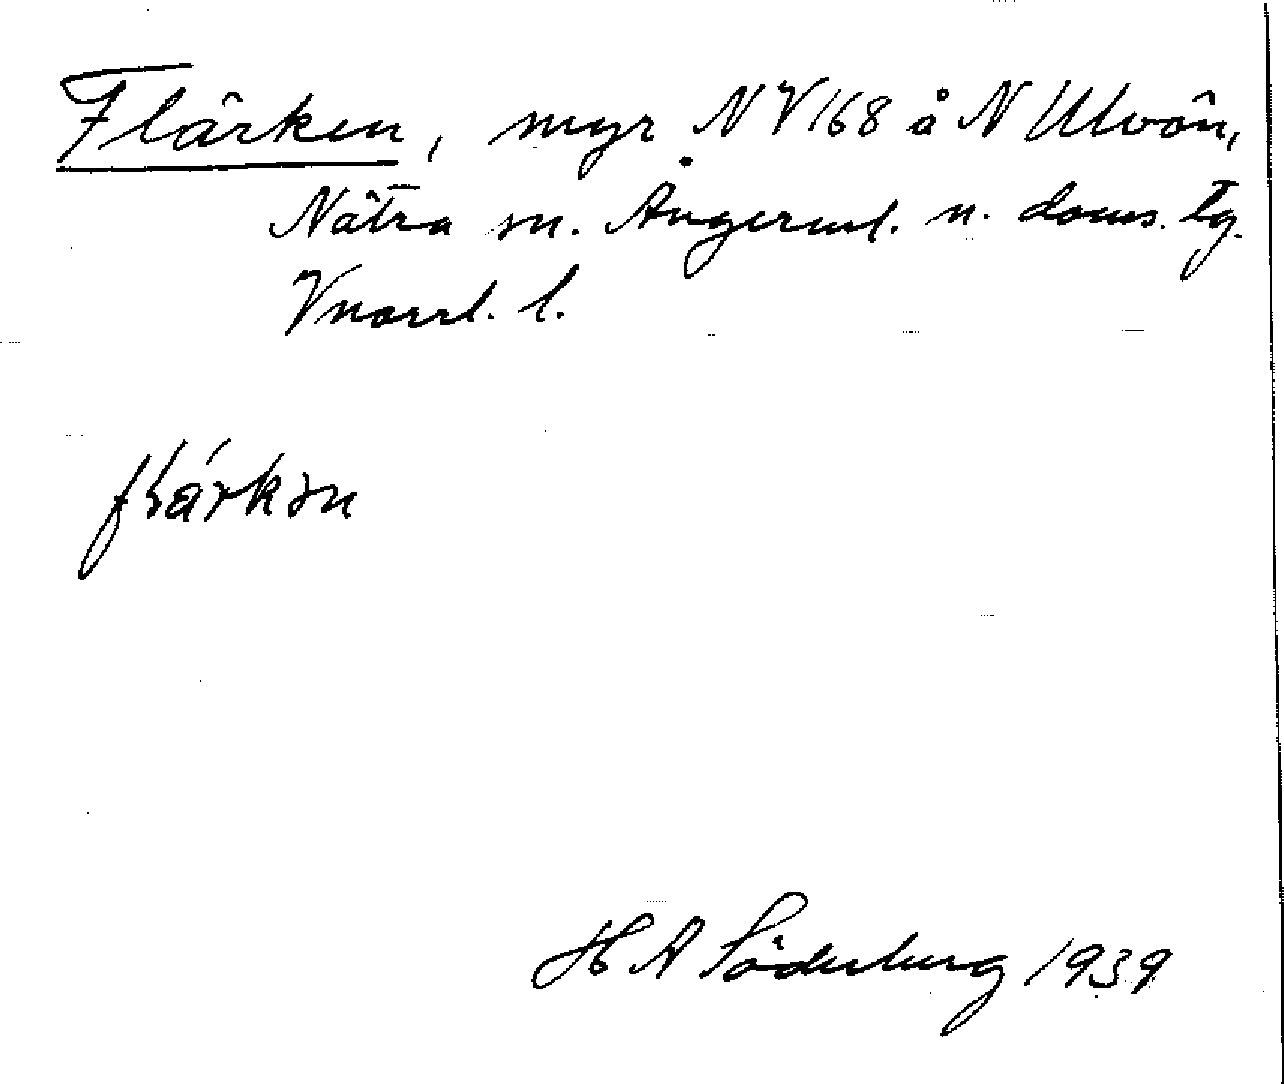 Flärken, myr NV 168 å N Ulvön,
Nätra sn. Ångerml. n. doms. tg.
Vnorrl. l.
flärkən
H A Söderberg 1939